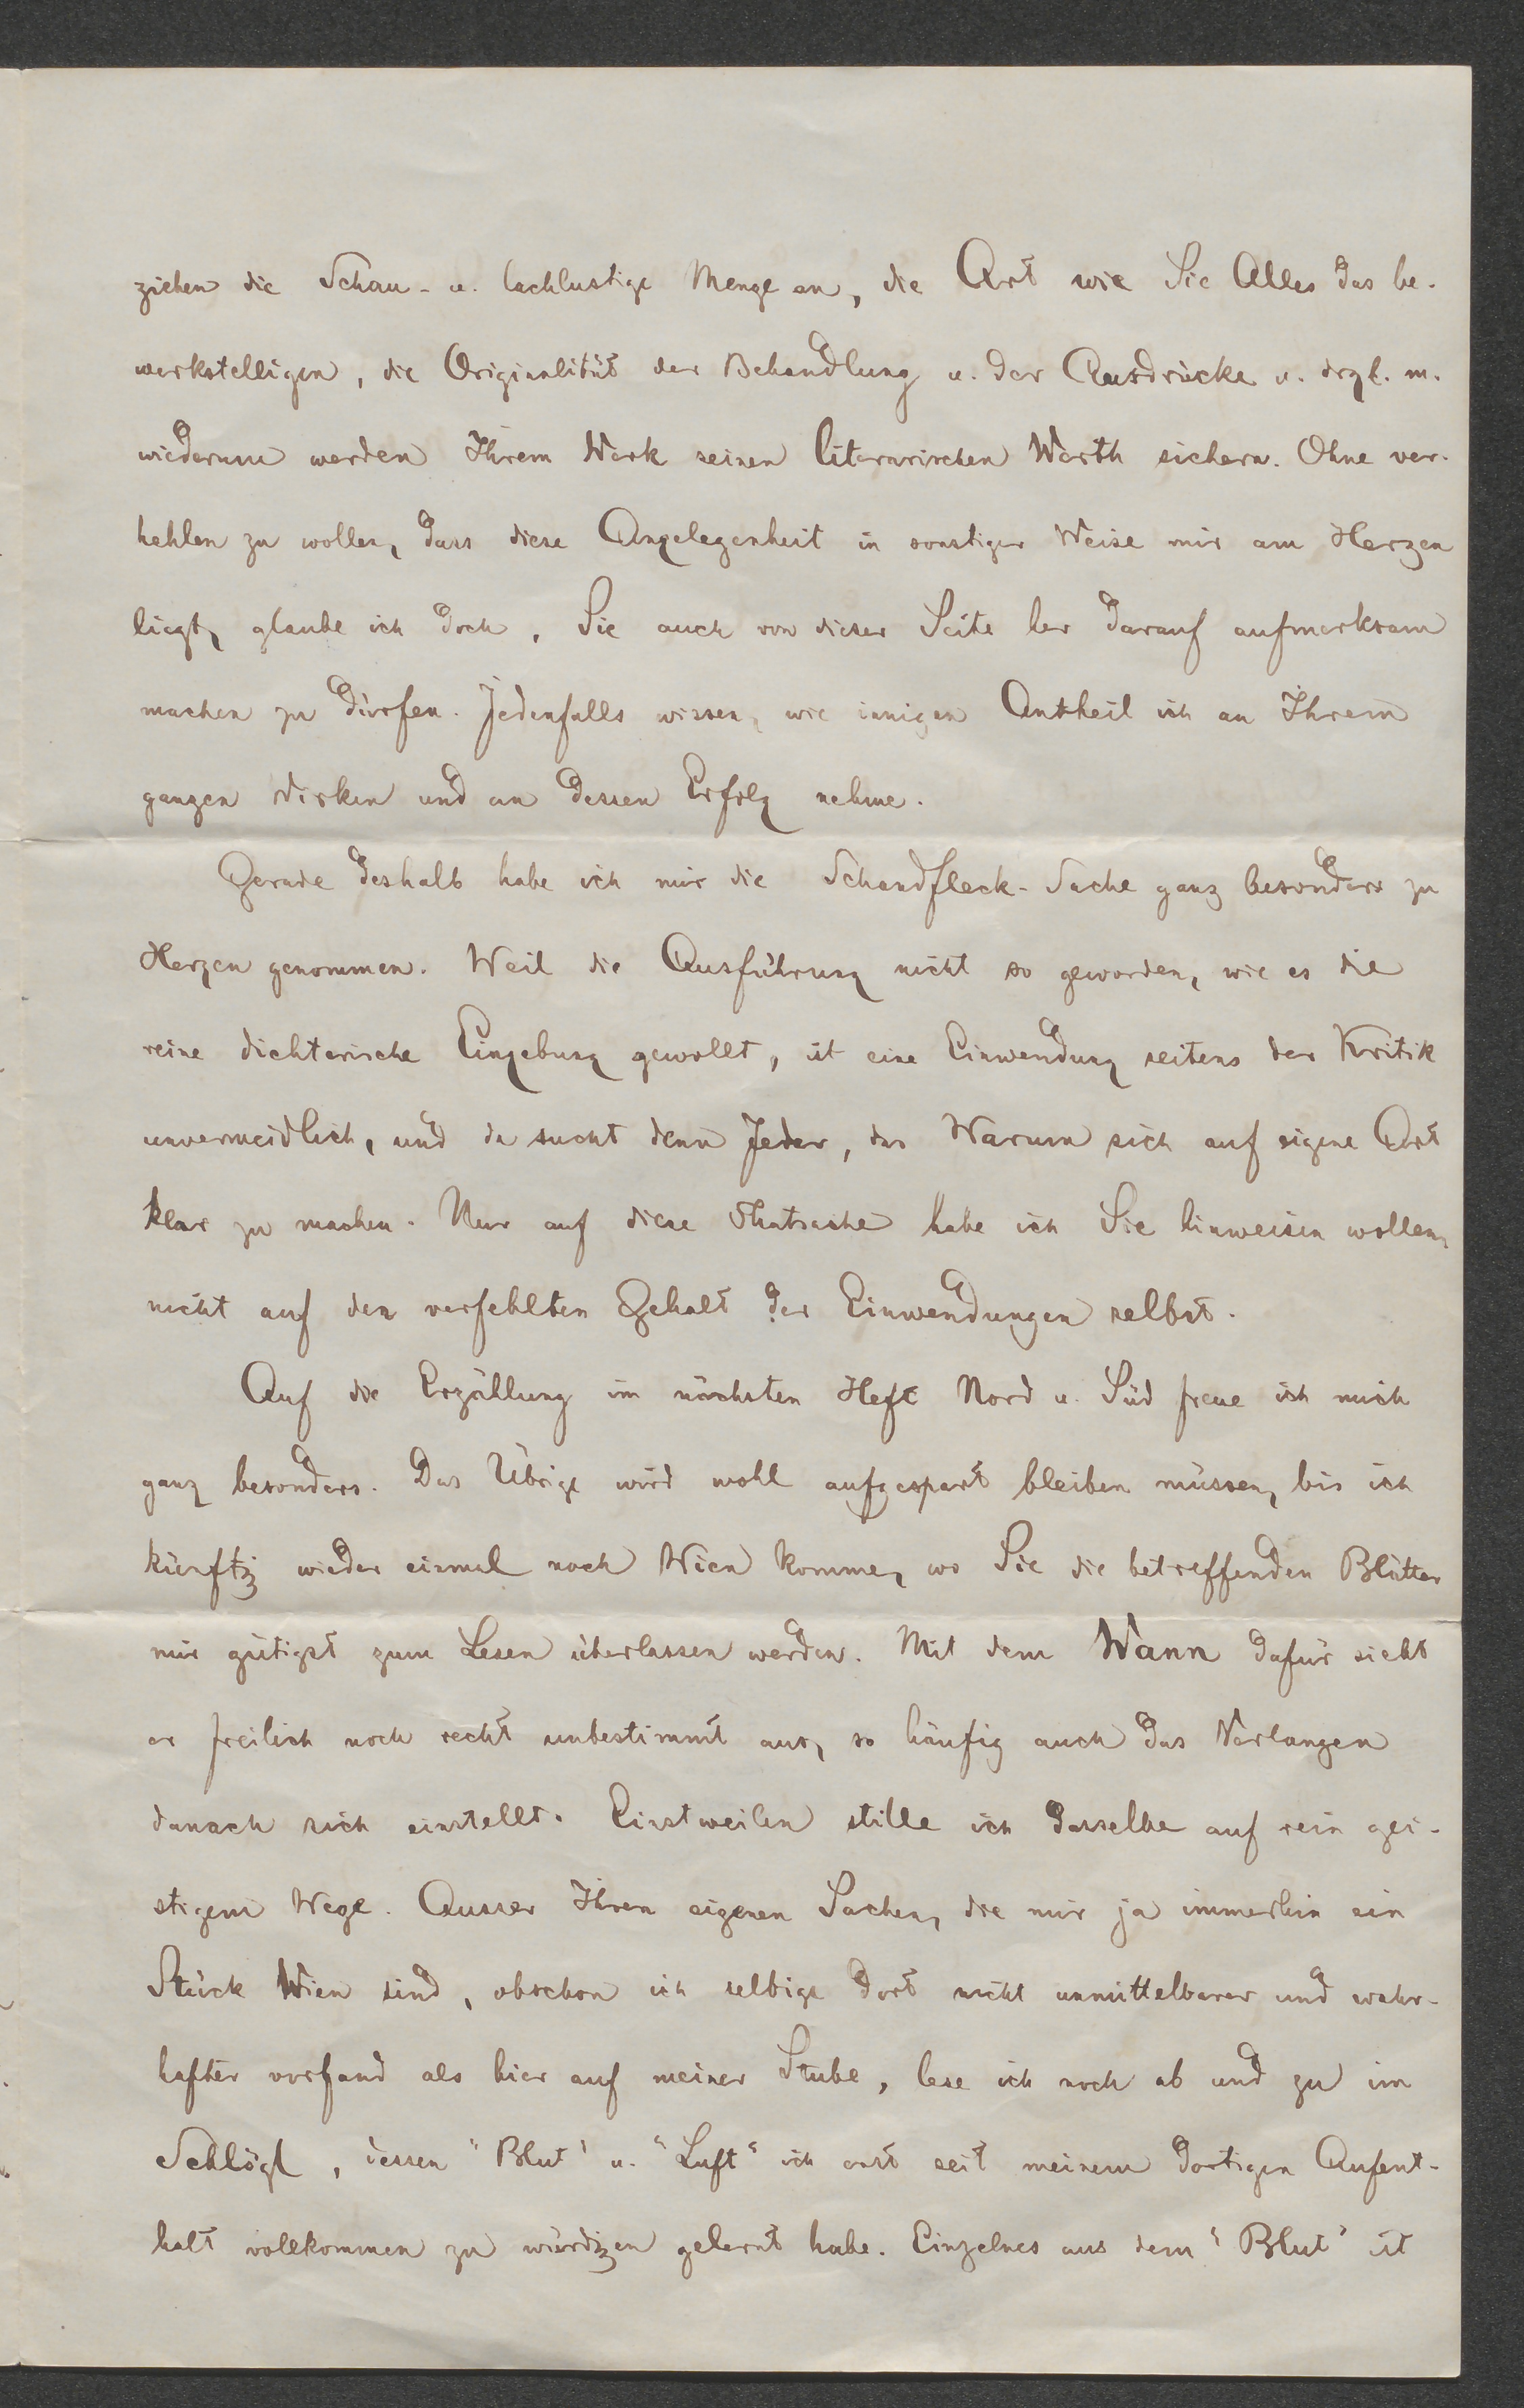 ziehen die Schau- u. lachlustige Menge an, die Art wie Sie Alles das be-
werkstelligen, die Originalität der Behandlung u. der Ausdrücke u. drgl. m.
wiederum werden Ihrem Werk seinen literarischen Werth sichern. Ohne ver-
hehlen zu wollen, dass diese Angelegenheit in sonstiger Weise mir am Herzen
liegt, glaube ich doch, Sie auch von dieser Seite her darauf aufmerksam
machen zu dürfen. Jedenfalls wissen, wie innigen Antheil ich an Ihrem
ganzen Wirken und an dessen Erfolg nehme.
Gerade deshalb habe ich mir die Schandfleck-Sache ganz besonders zu
Herzen genommen. Weil die Ausführung nicht so geworden, wie es die
reine dichterische Eingebung gewollt, ist eine Einwendung seitens der Kritik
unvermeidlich, und da sucht denn Jeder, das Warum sich auf eigene Art
klar zu machen. Nur auf diese Thatsache habe ich Sie hinweisen wollen,
nicht auf den verfehlten Gehalt der Einwendungen selbst.
Auf die Erzählung im nächsten Heft Nord u. Süd freue ich mich
ganz besonders. Das Übrige wird wohl aufgespart bleiben müssen, bis ich
künftig wieder einmal nach Wien komme, wo Sie die betreffenden Blätter
mir gütigst zum Lesen überlassen werden. Mit dem Wann dafür sieht
es freilich noch recht unbestimmt aus, so häufig auch das Verlangen
danach sich einstellt. Einstweilen stille ich dasselbe auf rein gei-
stigem Wege. Ausser Ihren eigenen Sachen, die mir ja immerhin ein
Stück Wien sind, obschon ich selbige dort nicht unmittelbarer und wahr-
hafter vorfand als hier auf meiner Stube, lese ich noch ab und zu im
Schlögl, dessen "Blut" u. "Luft" ich erst seit meinem dortigen Aufent-
halt vollkommen zu würdigen gelernt habe. Einzelnes aus dem "Blut" ist